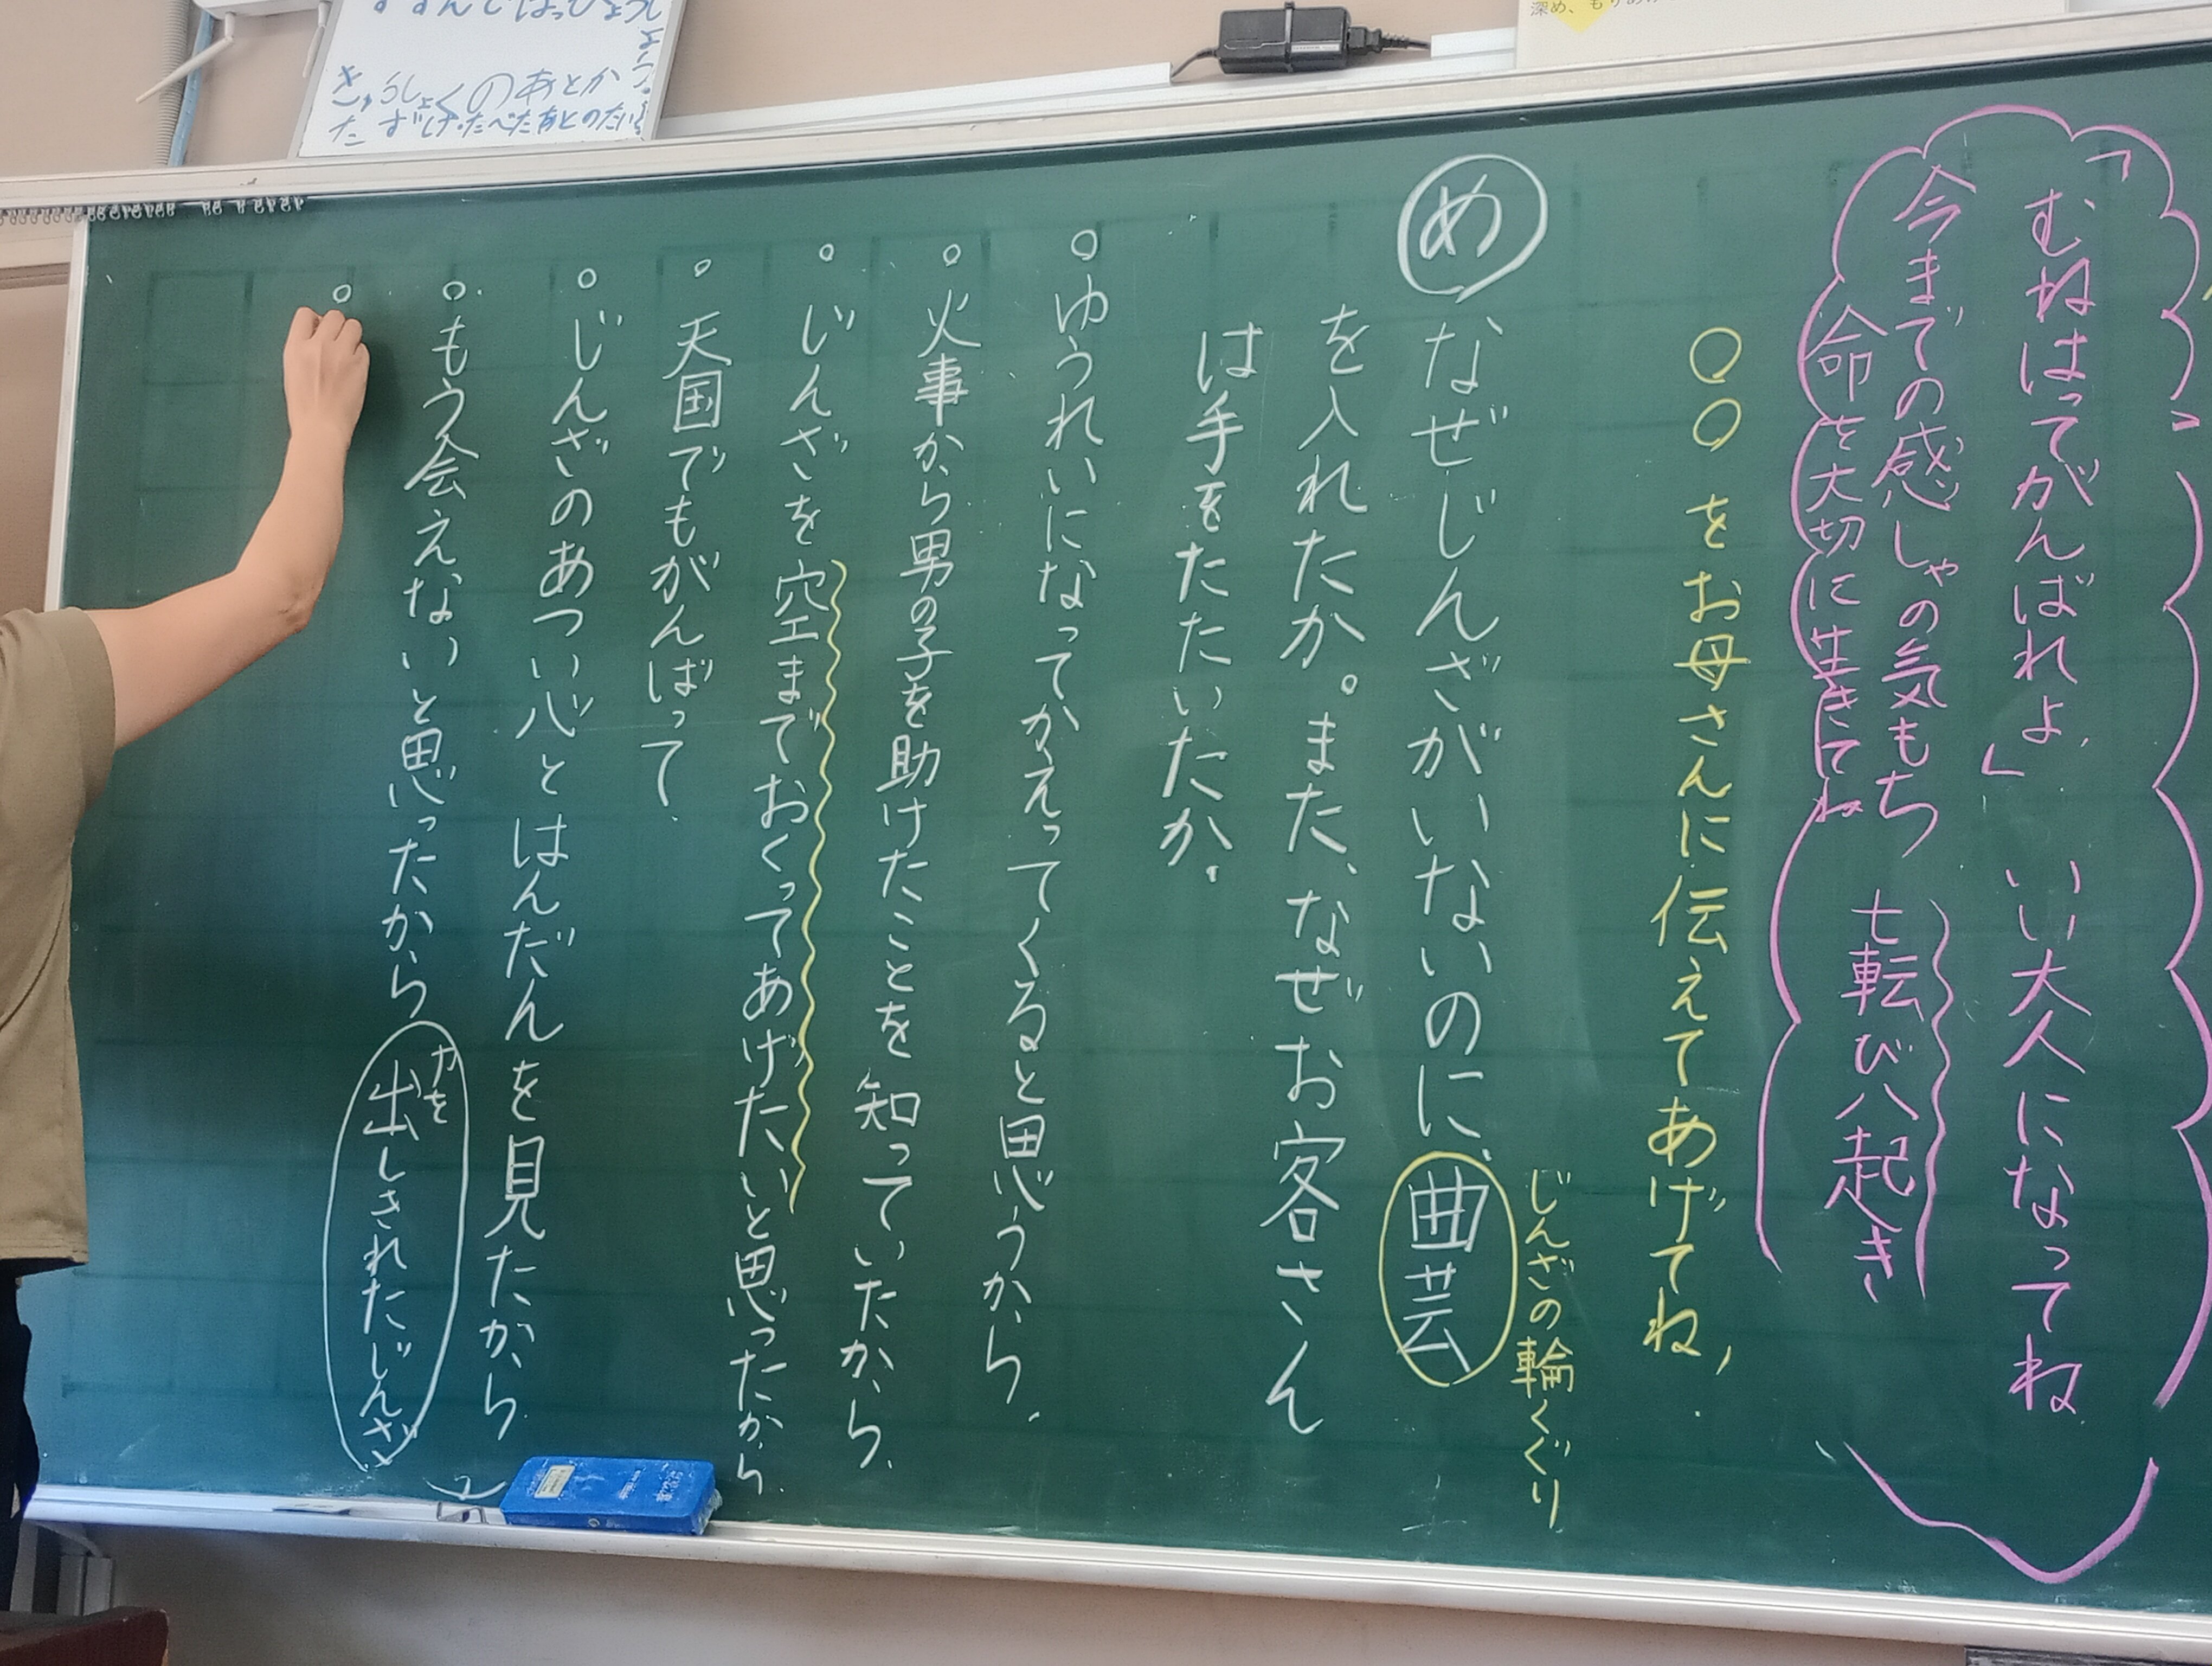 「むねはってがんばれよ」 いい大人になってね
今までの感しゃの気もち 七転び八起き
命を大切に生きてね
○○をお母さんに伝えてあげてね,
じんざの輪くぐり
め なぜじんざがいないのに、曲芸
を入れたか。また、なぜお客さん
は手をたたいたか.
○ゆうれいになってかえってくると思うから.
○火事から男の子を助けたことを知っていたから.
○じんざを空までおくってあげたいと思ったから.
○天国でもがんばって.
○じんざのあつい心とはんだんを見たから
○もう会えないと思ったから
力を
出しきれたじんざ
○
きゅうしょくのあとか
た ずけ・たべたあとのたい
深め、